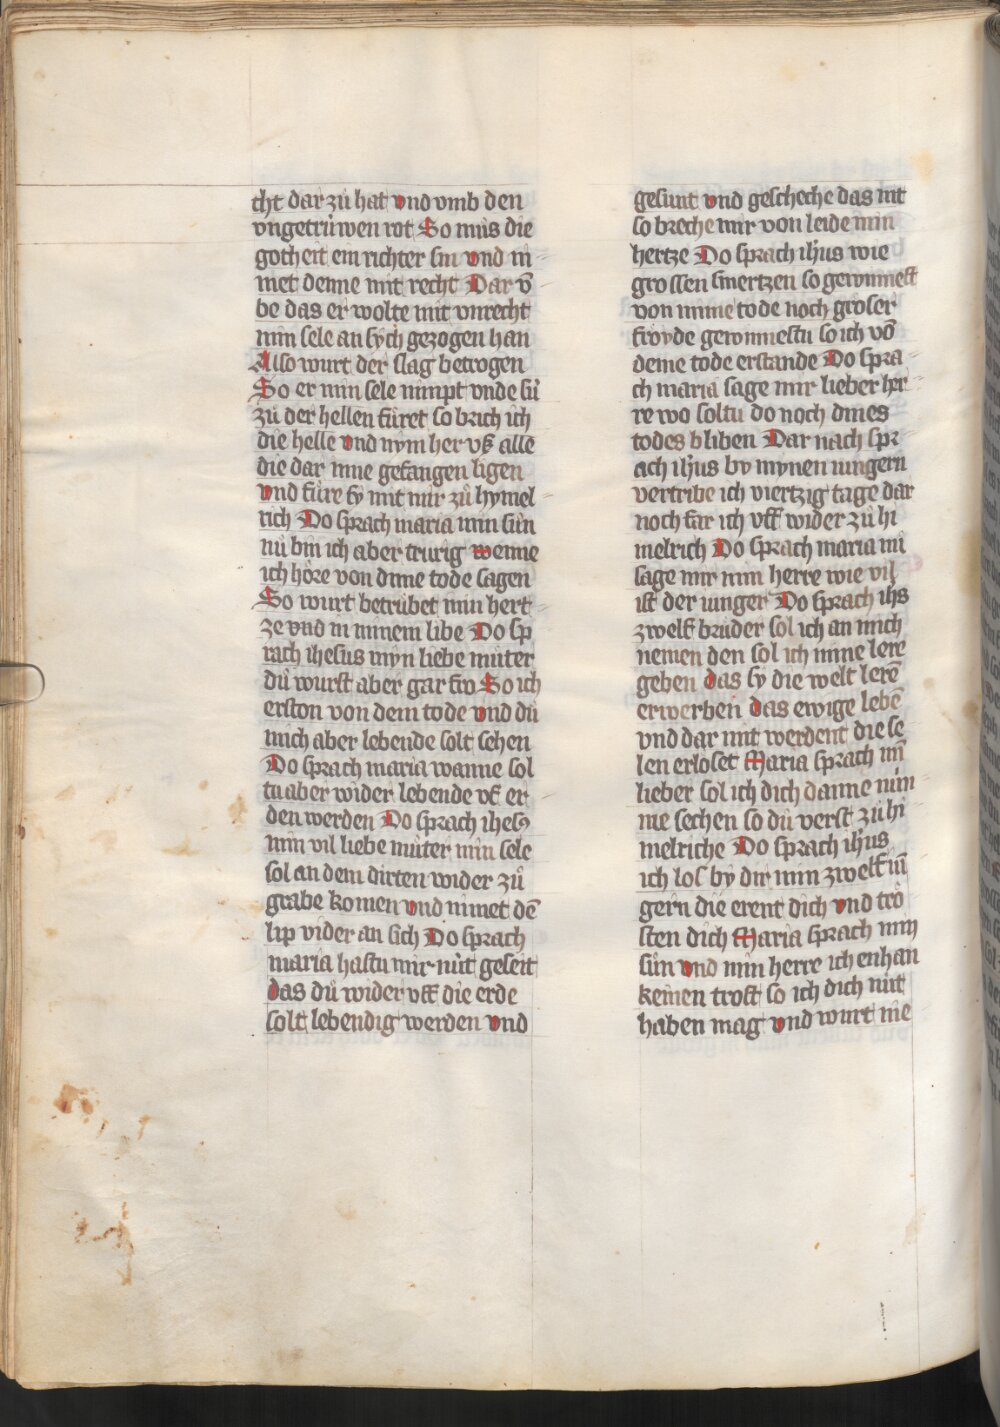 cht dar zuͦ hat vnd vmb den
vngetruͥwen rot So muͦs die
gotheit ein richter sin vnd ni
met denne mit recht Dar vm̄
be das er wolte mit vnrecht
min sele an sych gezogen han
Also wurt der slag betrogen
So er min sele nimpt vnde suͥ
zuͦ der hellen fuͥret so brich ich
die helle vnd nym her vß alle
die dar inne gefangen ligen
vnd fuͥre sy mit mir zuͦ hymel
rich Do sprach maria min suͥn
nuͥ bin ich aber trurig wenne
ich hoͤre von dime tode sagen
So wurt betruͥbet min hert
ze vnd in minem libe Do sp
rach ihesus myn liebe muͦter
duͥ wurst aber gar fro So ich
erston von dem tode vnd duͥ
mich aber lebende solt sehen
Do sprach maria wanne sol
tu aber wider lebende vf er
den werden Do sprach ihesꝰ
min vil liebe muͦter min sele
sol an dem dirten wider zuͦ
grabe komen vnd nimet dē
lip vider an sich Do sprach
maria hastu mir nuͥt geseit
das duͥ wider vff die erde
solt lebendig werden vnd
gesunt vnd geschehe das nit
so breche mir von leide min
hertze Do sprach ihus wie
grossen smertzen so gewinnest
von mime tode noch groser
froͤyde gewinnestu so ich vō
deme tode erstande Do spra
ch maria sage mir lieber her
re wo soltu do noch dines
todes bliben Dar nach spr
ach ihus by mynen iungern
vertribe ich viertzig tage dar
noch far ich vff wider zuͦ hi
melrich Do sprach maria mi
sage mir min herre wie vil
ist der iunger Do sprach ihs
zwelf bruͦder sol ich an mich
nemen den sol ich mine lere
geben das sy die welt lerē
erwerben das ewige lebē
vnd dar mit werdent die se
len erloset Maria sprach mī
lieber sol ich dich danne nuͥn
me sechen so duͥ verst zuͦ hi
melriche Do sprach ihus
ich los by dir min zwelf iū
gern die erent dich vnd troͤ
sten dich Maria sprach min
suͥn vnd min herre ich enhan
keinen trost so ich dich nuͥt
haben mag vnd wurt me